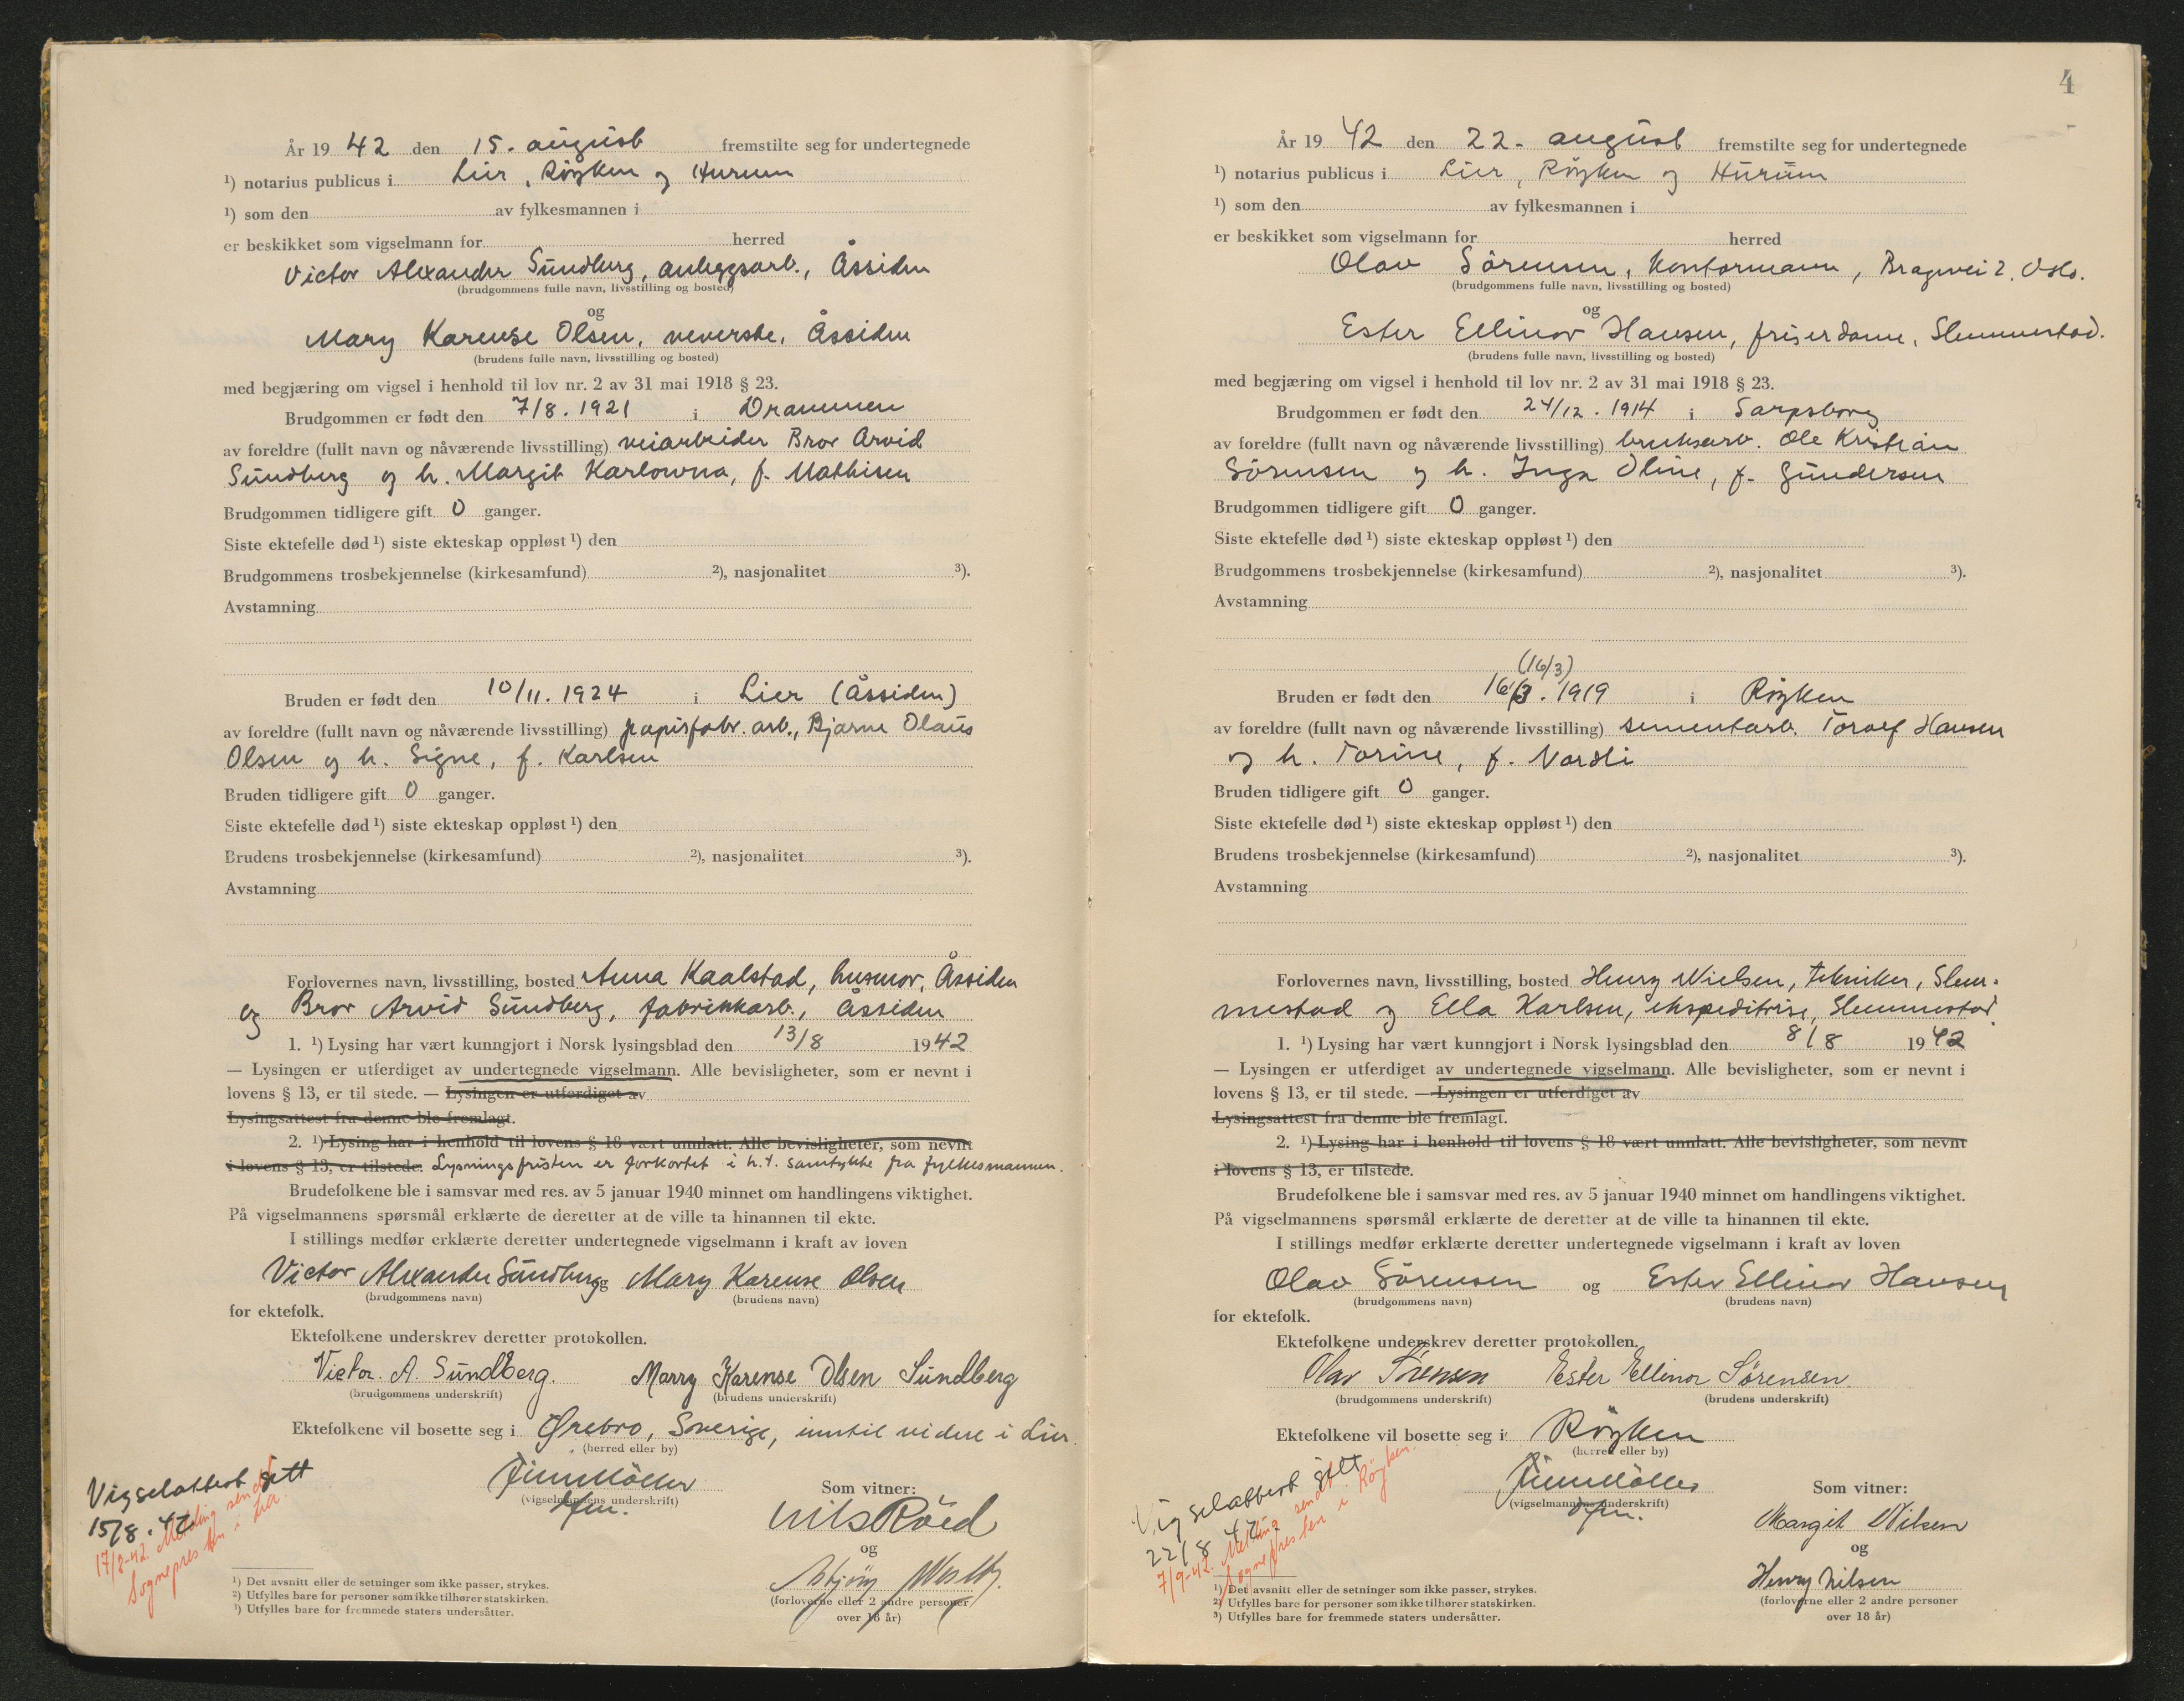 År 19 42 den 15. august fremstilte seg for undertegnede
¹) notarius publicus i Lier, Röyken og Hurum
¹) som den av fylkesmannen i
er beskikket som vigselmann for herred
Victor Alexander Sundberg, anleggsarb., Åssiden
(brudgommens fulle navn, livsstilling og bosted)
og
Mary Karense Olsen, neverske, Åssiden
(brudens fulle navn, livsstilling og bosted)
med begjæring om vigsel i henhold til lov nr. 2 av 31 mai 1918 § 23.
Brudgommen er født den 7/8. 1921 i Drammen
av foreldre (fullt navn og nåværende livsstilling) veiarbeider Bror Arvid
Sundberg og h. Margit Karlowna, f. Mathisen
Brudgommen tidligere gift 0 ganger.
Siste ektefelle død ¹) siste ekteskap oppløst ¹) den
Brudgommens trosbekjennelse (kirkesamfund) ²), nasjonalitet ³).
Avstamning
Bruden er født den 10/11. 1924 i Lier (Åssiden)
av foreldre (fullt navn og nåværende livsstilling) papirfabr. arb., Bjarne Olaus
Olsen og h. Signe, f. Karlsen
Bruden tidligere gift 0 ganger.
Siste ektefelle død ¹) siste ekteskap oppløst ¹) den
Brudens trosbekjennelse (kirkesamfund) ²), nasjonalitet ³).
Avstamning
Forlovernes navn, livsstilling, bosted Anna Kaalstad, husmor, Åssiden
og Bror Arvid Sundberg, fabrikkarb., Åssiden
1. ¹) Lysing har vært kunngjort i Norsk lysingsblad den 13/8 19 42
— Lysingen er utferdiget av undertegnede vigselmann. Alle bevisligheter, som er nevnt i
lovens § 13, er til stede. — Lysingen er utferdiget av
Lysingsattest fra denne ble fremlagt.
2. ¹) Lysing har i henhold til lovens § 18 vært unnlatt. Alle bevisligheter, som nevnt
i lovens § 13, er tilstede. Lysningsfristen er forkortet i h.t. samtykke fra fylkesmannen.
Brudefolkene ble i samsvar med res. av 5 januar 1940 minnet om handlingens viktighet.
På vigselmannens spørsmål erklærte de deretter at de ville ta hinannen til ekte.
I stillings medfør erklærte deretter undertegnede vigselmann i kraft av loven
Victor Alexander Sundberg og Mary Karense Olsen
(brudgommens navn) (brudens navn)
for ektefolk.
Ektefolkene underskrev deretter protokollen.
Victor. A. Sundberg. Marry Karense Olsen Sundberg
(brudgommens underskrift) (brudens underskrift)
Ektefolkene vil bosette seg i Ørebro, Sverige, inntil videre i Lier.
(herred eller by)
Vigselattest gitt
15/8. 42
17/8-42. Melding sendt
Sognepresten i Lier.
(vigselmannens underskrift)
Som vitner:
Nils Röed
og
(forloverne eller 2 andre personer
over 18 år)
¹) Det avsnitt eller de setninger som ikke passer, strykes.
²) Utfylles bare for personer som ikke tilhører statskirken.
³) Utfylles bare for fremmede staters undersåtter.
4
År 19 42 den 22. august fremstilte seg for undertegnede
¹) notarius publicus i Lier, Röyken og Hurum
¹) som den av fylkesmannen i
er beskikket som vigselmann for herred
Olav Sörensen, kontormann, Bragevei 2, Oslo.
(brudgommens fulle navn, livsstilling og bosted)
og
Ester Ellinor Hansen, friserdame, Slemmestad.
(brudens fulle navn, livsstilling og bosted)
med begjæring om vigsel i henhold til lov nr. 2 av 31 mai 1918 § 23.
Brudgommen er født den 24/12. 1914 i Sarpsborg
av foreldre (fullt navn og nåværende livsstilling) bruksarb. Ole Kristian
Sörensen og h. Inga Oline, f. Gundersen
Brudgommen tidligere gift 0 ganger.
Siste ektefelle død ¹) siste ekteskap oppløst ¹) den
Brudgommens trosbekjennelse (kirkesamfund) ²), nasjonalitet ³).
Avstamning
(16/3)
Bruden er født den 16/3. 1919 i Röyken
av foreldre (fullt navn og nåværende livsstilling) sementarb. Toralf Hansen
og h. Torine, f. Nordli
Bruden tidligere gift 0 ganger.
Siste ektefelle død ¹) siste ekteskap oppløst ¹) den
Brudens trosbekjennelse (kirkesamfund) ²), nasjonalitet ³).
Avstamning
Forlovernes navn, livsstilling, bosted Henry Nielsen, tekniker, Slem-
mestad og Ella Karlsen, ekspeditrise, Slemmestad
1. ¹) Lysing har vært kunngjort i Norsk lysingsblad den 8/8 19 42
— Lysingen er utferdiget av undertegnede vigselmann. Alle bevisligheter, som er nevnt i
lovens § 13, er til stede. — Lysingen er utferdiget av
Lysingsattest fra denne ble fremlagt.
2. ¹) Lysing har i henhold til lovens § 18 vært unnlatt. Alle bevisligheter, som nevnt
i lovens § 13, er tilstede.
Brudefolkene ble i samsvar med res. av 5 januar 1940 minnet om handlingens viktighet.
På vigselmannens spørsmål erklærte de deretter at de ville ta hinannen til ekte.
I stillings medfør erklærte deretter undertegnede vigselmann i kraft av loven
Olav Sörensen og Ester Ellinor Hansen
(brudgommens navn) (brudens navn)
for ektefolk.
Ektefolkene underskrev deretter protokollen.
Olav Sørensen Ester Ellinor Sørensen.
(brudgommens underskrift) (brudens underskrift)
Ektefolkene vil bosette seg i Röyken
(herred eller by)
Vigselattest gitt
22/8 42.
7/9-42. Melding sendt
Sognepresten i Røyken.
(vigselmannens underskrift)
Som vitner:
Margit Nilsen
og
Henry Nilsen
(forloverne eller 2 andre personer
over 18 år)
¹) Det avsnitt eller de setninger som ikke passer, strykes.
²) Utfylles bare for personer som ikke tilhører statskirken.
³) Utfylles bare for fremmede staters undersåtter.